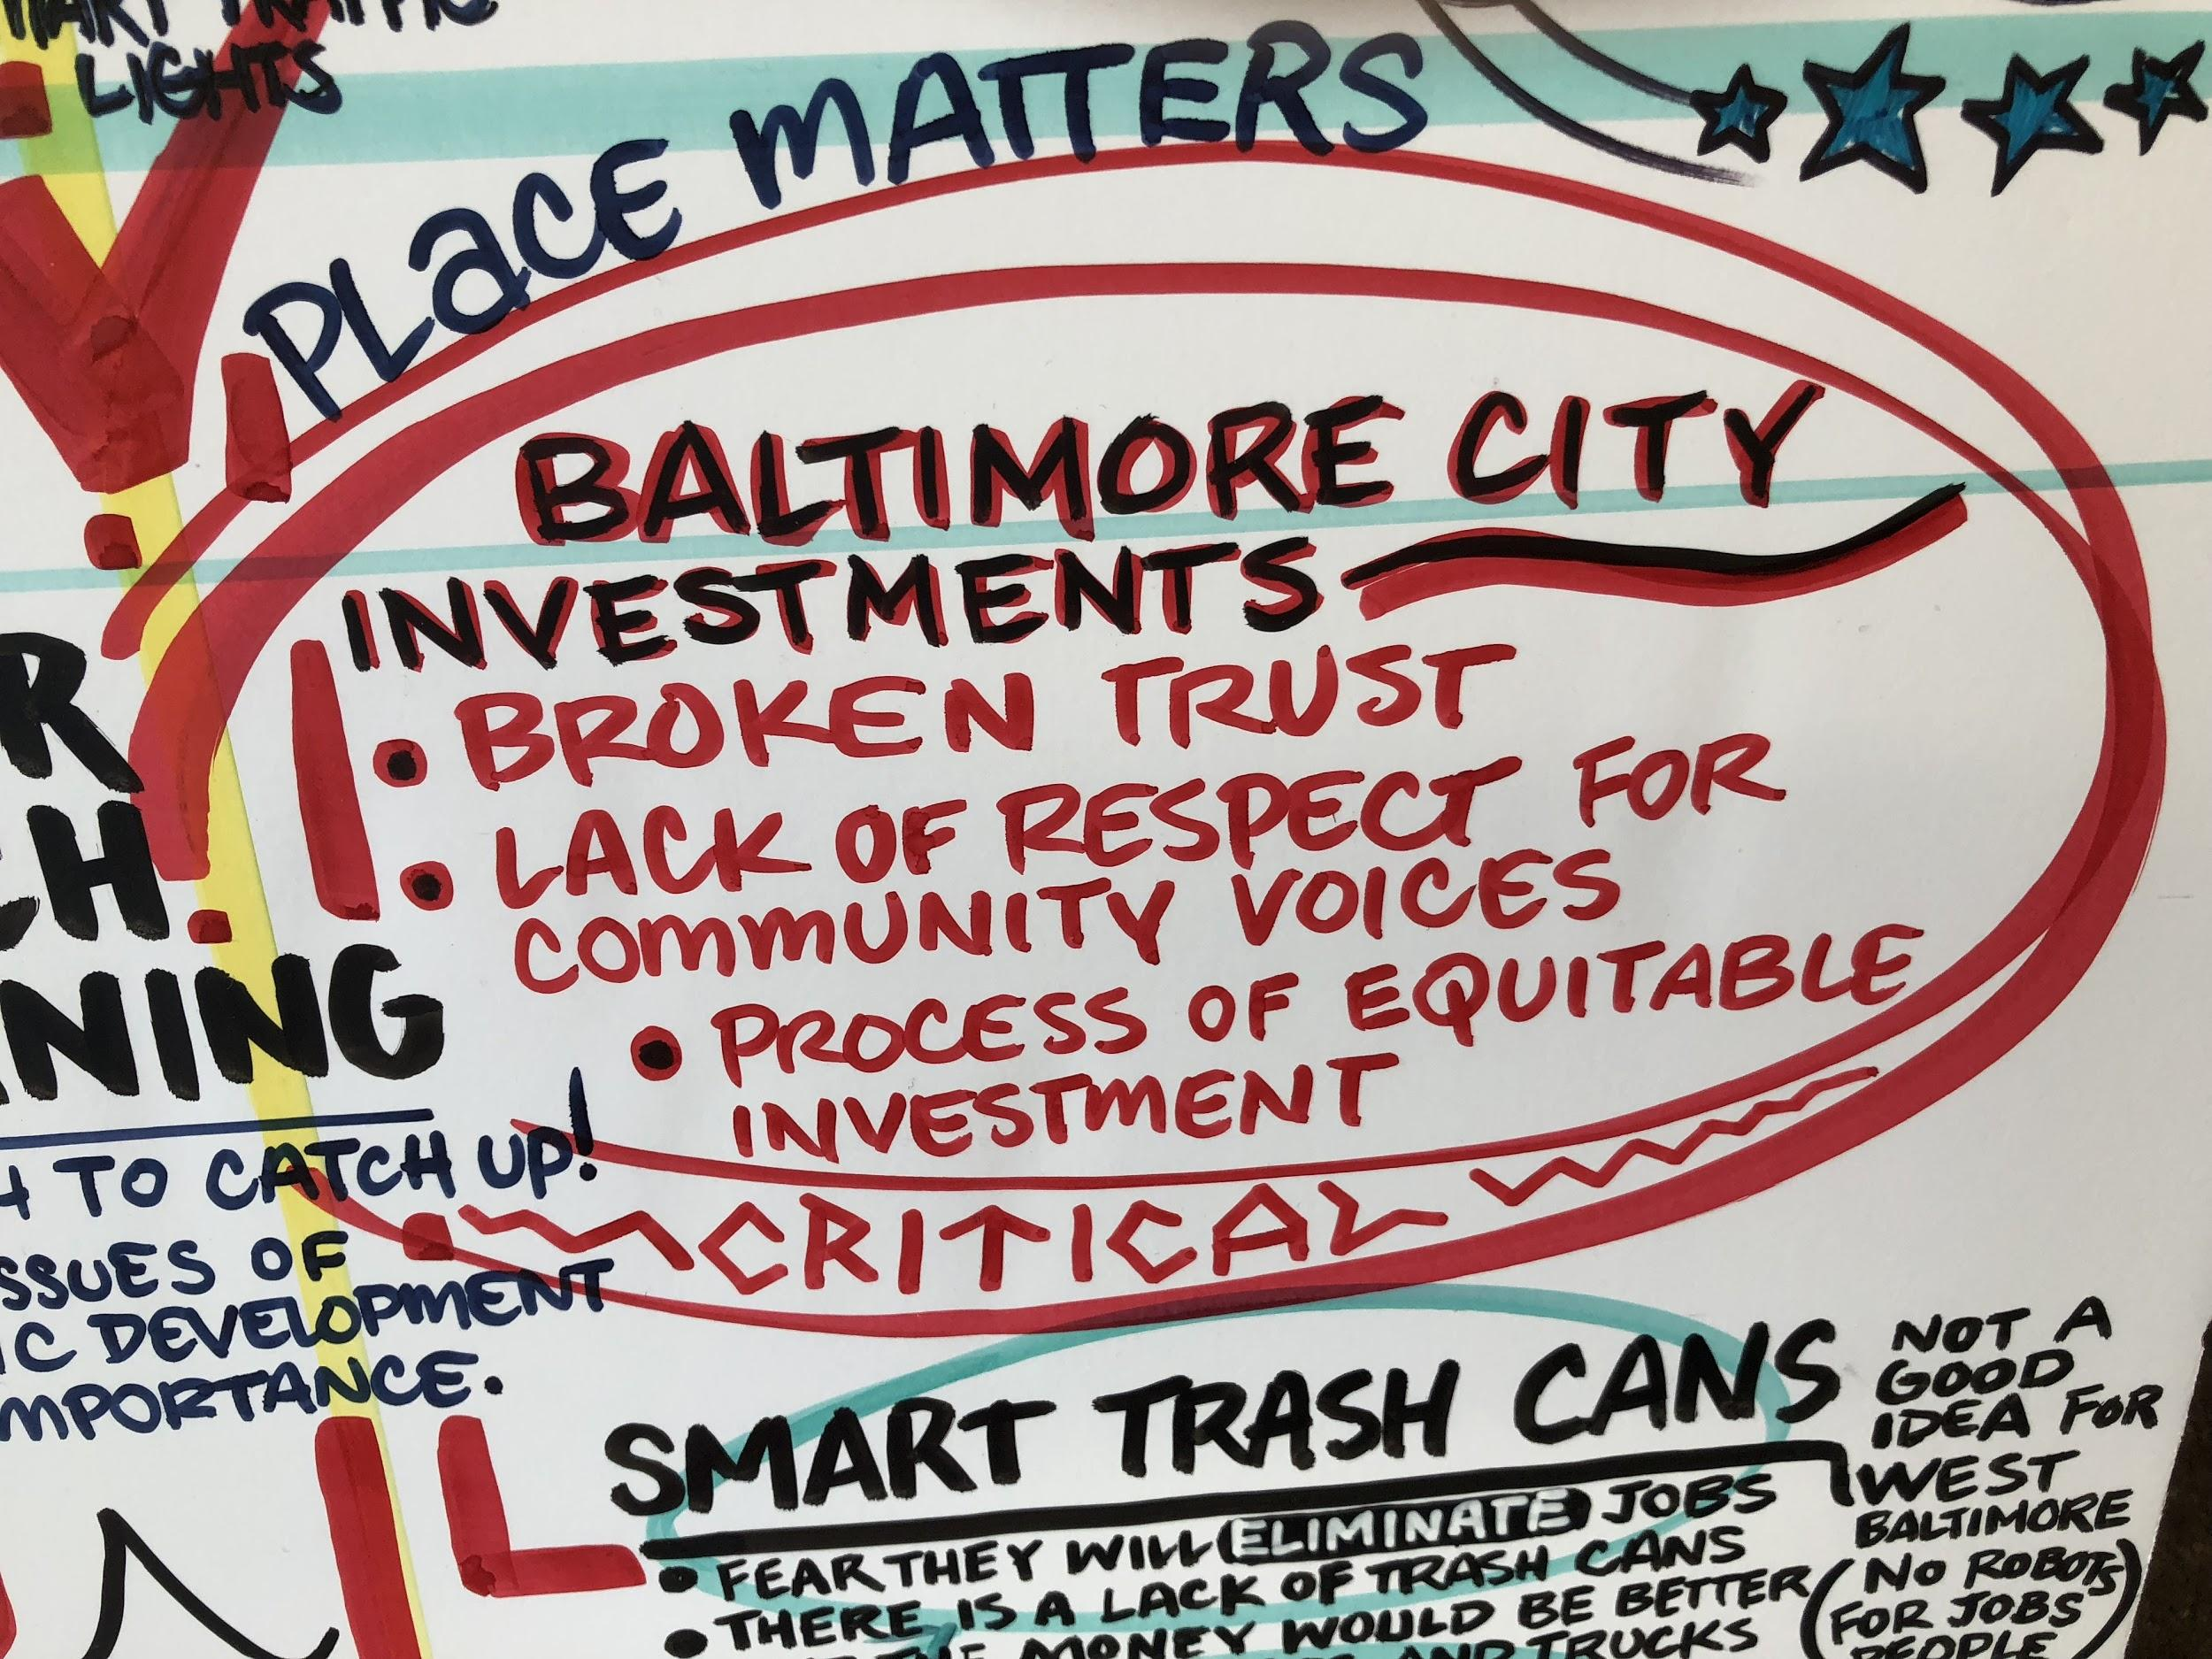 LIGHTS
PLACE MATTERS
BALTIMORE CITY
INVESTMENTS
• BROKEN TRUST
• LACK OF RESPECT FOR
COMMUNITY VOICES
• PROCESS OF EQUITABLE
INVESTMENT
CRITICAL
TO CATCH UP!
OF
DEVELOPMENT
SMART TRASH CANS
• FEAR THEY WILL ELIMINATE JOBS
• THERE IS A LACK OF TRASH CANS
MONEY WOULD BE BETTER
AND TRUCKS
NOT A
GOOD
IDEA FOR
WEST
BALTIMORE
(NO ROBOTS
FOR JOBS
PEOPLE)